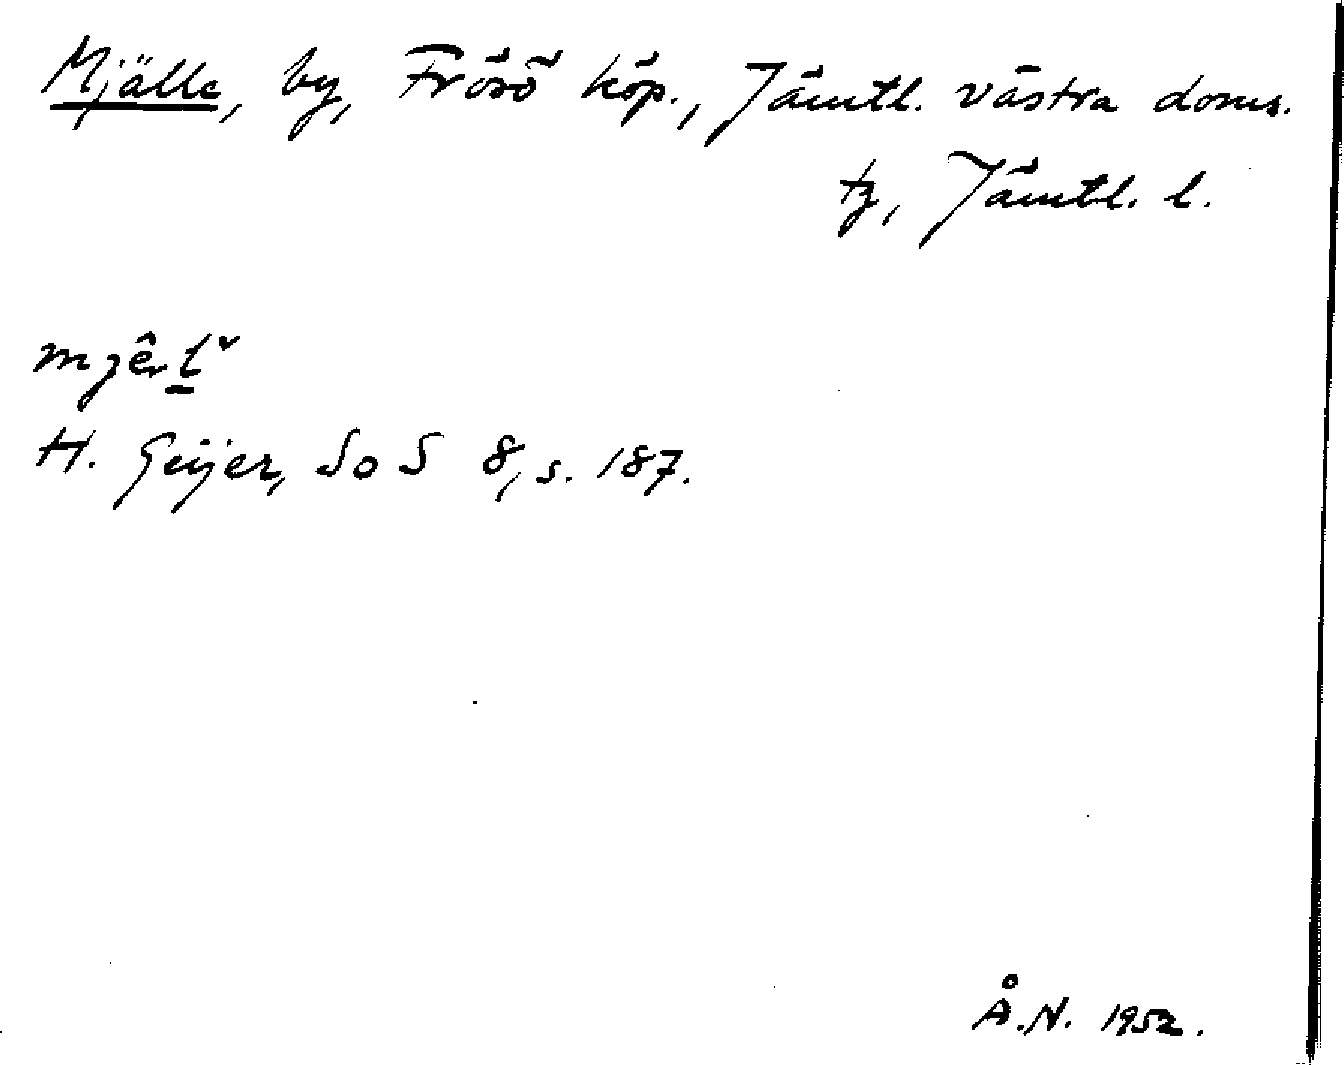 Mjälle, by, Frösö köp., Jämtl. västra doms.
tg, Jämtl. l.
H. Geijer, SoS 8, s. 187.
Å.N. 1952.